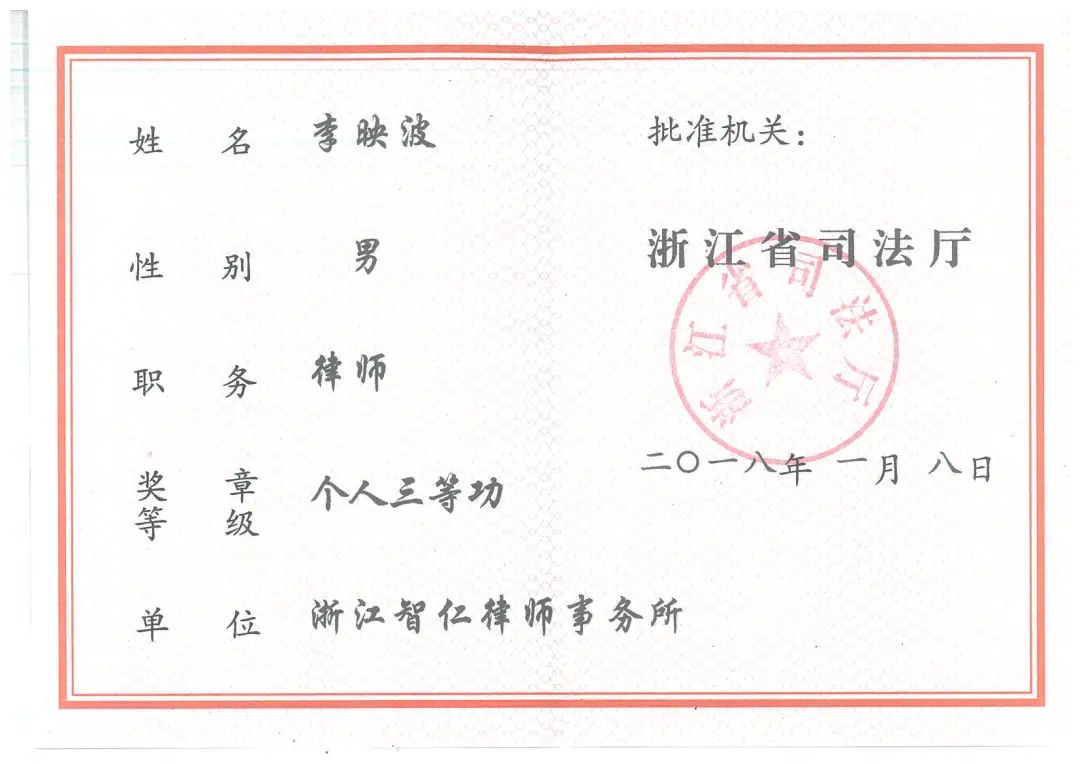 姓名 李映波
性别 男
职务 律师
奖章等级 个人三等功
单位 浙江智仁律师事务所
批准机关：
浙江省司法厅
浙江省司法厅
二〇一八年 一月 八日